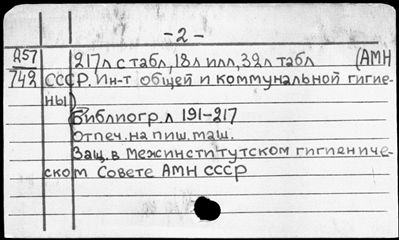 -2-
А57 217л с табл, 18л илл, 32л табл (АМН
742 СССР. Ин-т общей и коммунальной гигие-
ны)
Библиогр. л 191-217
Отпеч. на пиш. маш.
Защ. в Межинститутском гигиениче-
ском Совете АМН СССР